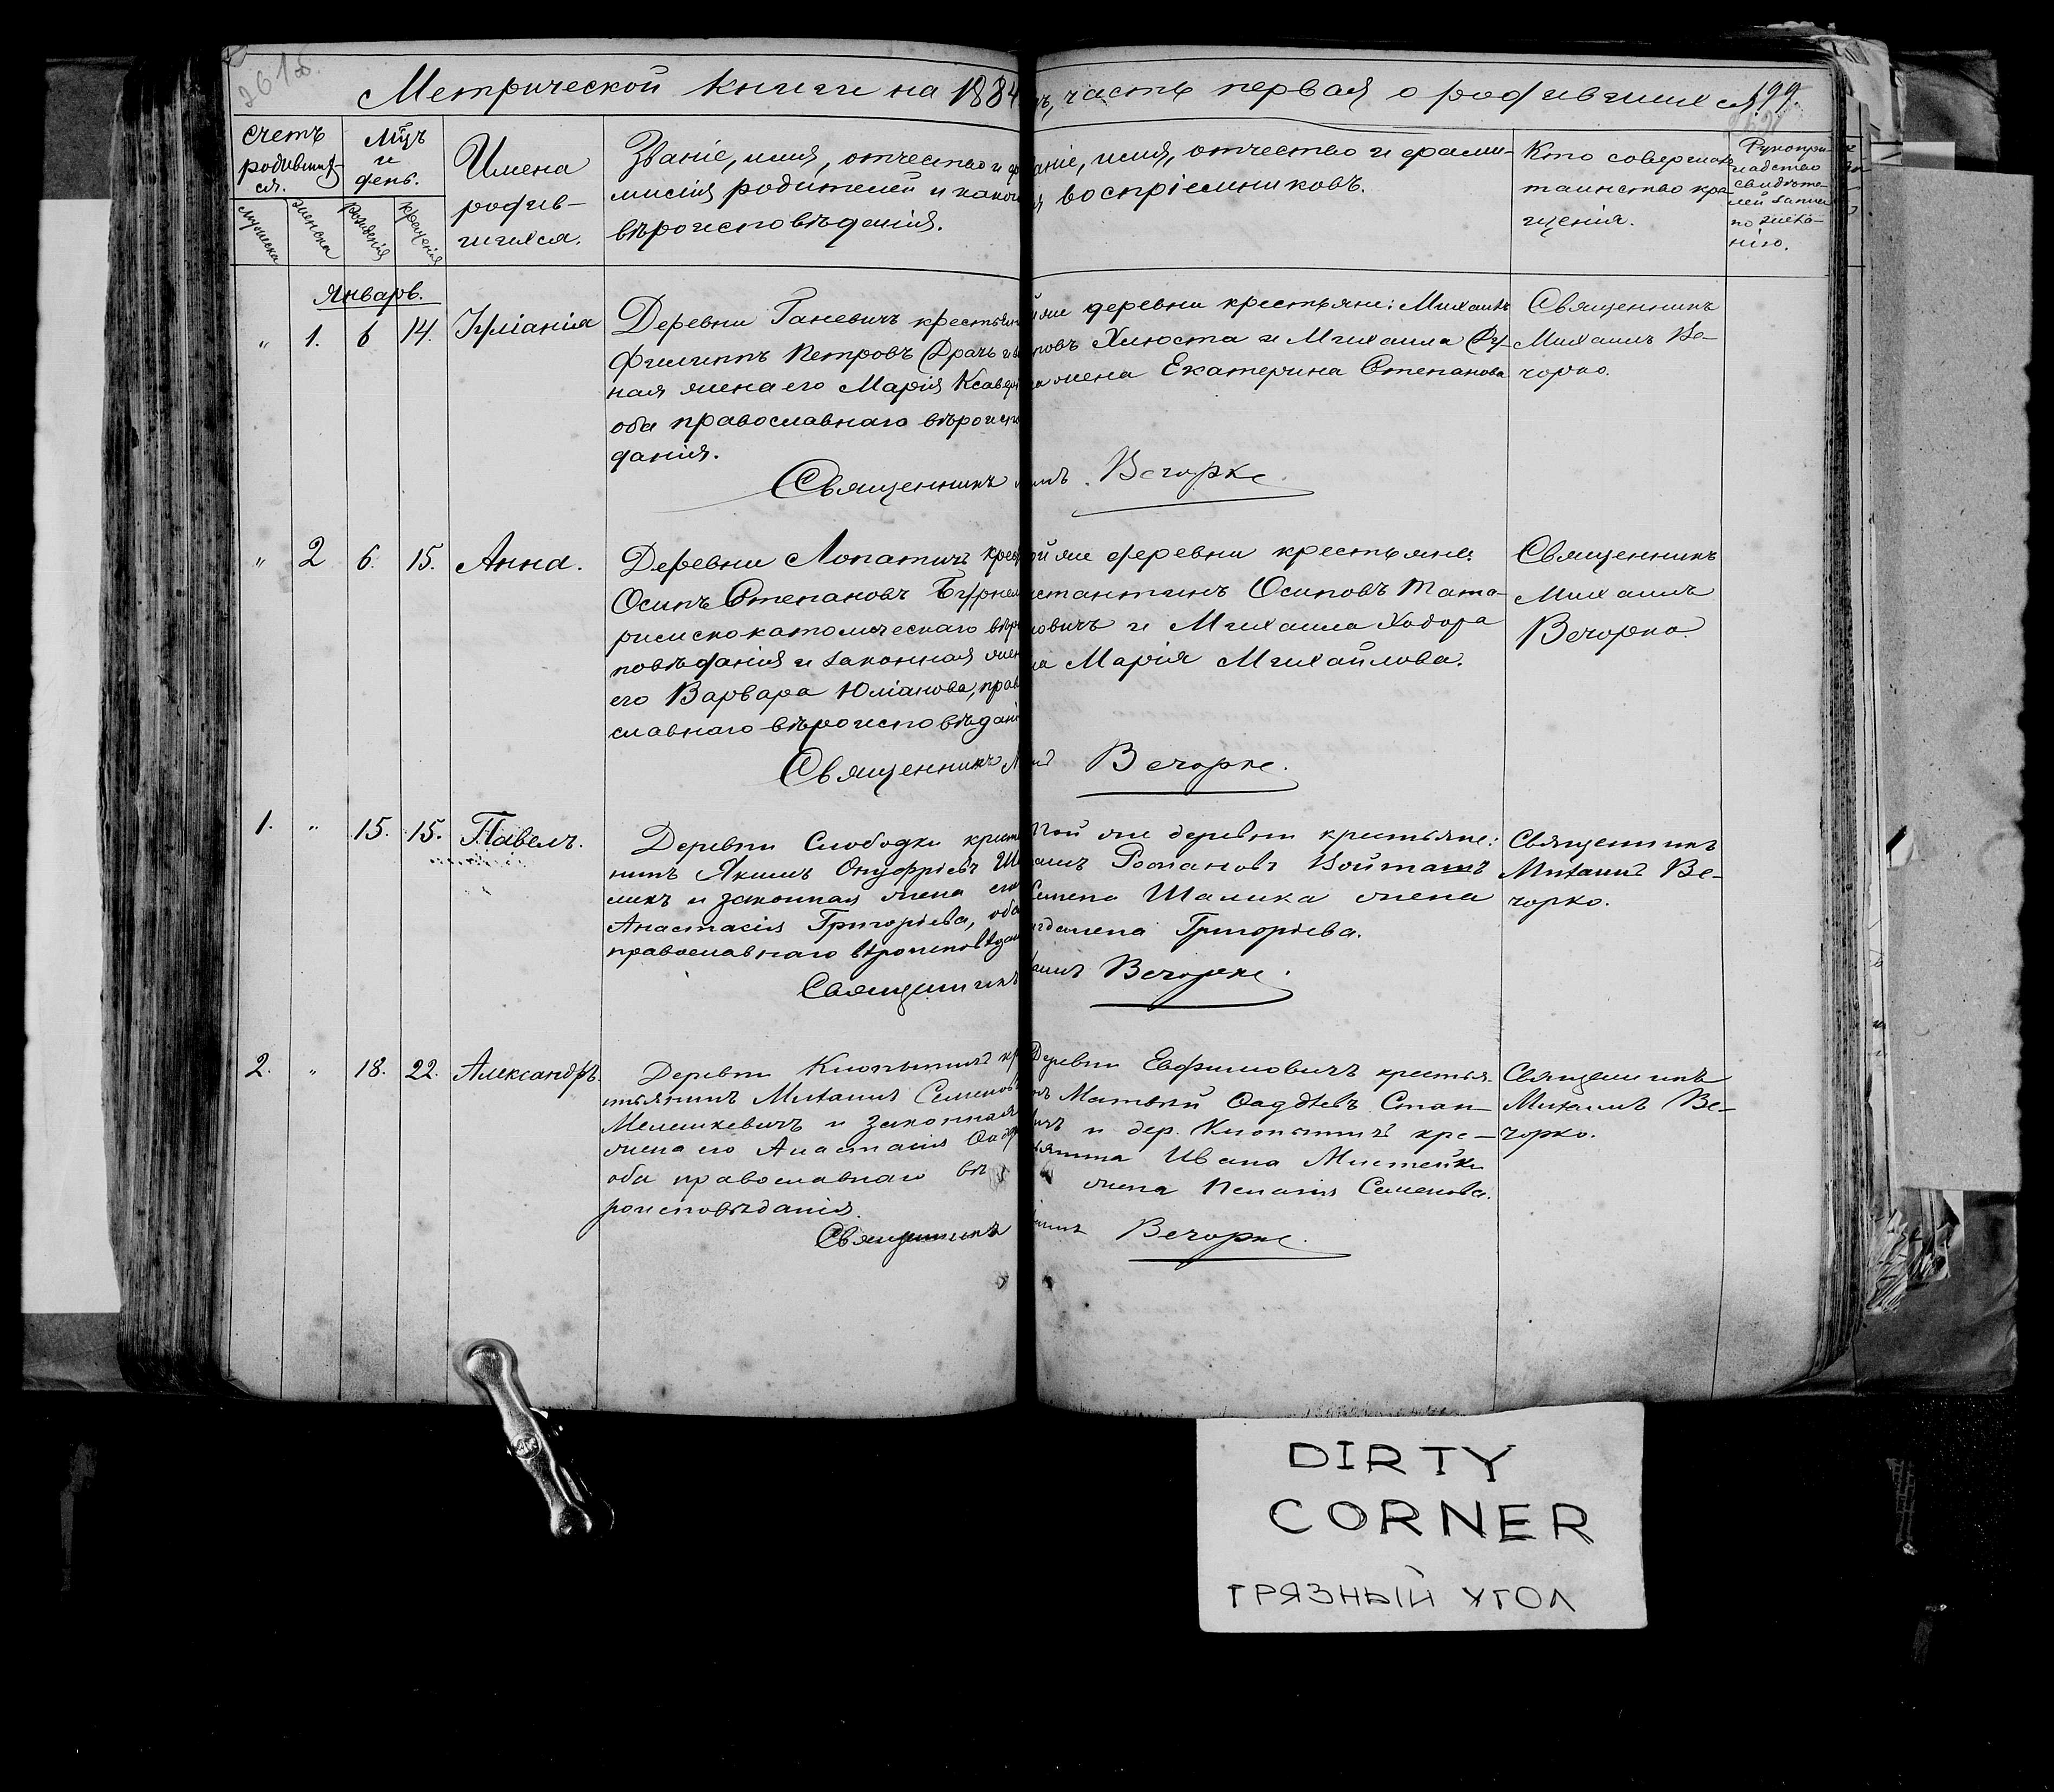 Метрической книги на 1884
ъ, часть первая о родившихся 199.
счетъ
родивших-
ся.
Мцъ
и
день.
Имена
родив-
шихся.
Званіе, имя, отчество и фа
милія родителей и какого
вѣроисповѣданія.
аніе, имя, отчество и фами-
я воспріемниковъ.
Кто совершалъ
таинство кре
щенія.
Рукопри-
кладство
свидѣте-
лей записи
по жела-
нію.
мужеска
женска
рожденія
крещенія
Январь.
" 1. 6 14. Іуліанія
Деревни Ганевичъ крестьян
Филиппъ Петровъ Драчъ и за
ная жена его Марія Ксавер
оба православнаго вѣроисп
данія.
Священникъ
йже деревни крестьяне: Михаилъ
ровъ Хлюста и Михаила Ру-
жена Екатерина Степанова
илъ Вечорко
Священникъ
Михаилъ Ве-
чорко.
" 2 6. 15. Анна.
Деревни Лопатичъ крес
Осипъ Степановъ
римскокатолическаго вѣро
повѣданія и законная жен
его Варвара Юліанова, прав
славнаго вѣроисповѣдані
Священникъ М
ой же деревни крестьяне:
стантинъ Осиповъ Тата-
новичъ и Михаила Ходора
на Марія Михайлова.
илъ Вечорко.
Священникъ
Михаилъ
Вечорко.
1. " 15. 15. Павелъ.
Деревни Слободки крест
нинъ Якимъ Онуфріевъ Ша
ликъ и законная жена его
Анастасія Григорьева, оба
православнаго вѣроисповѣдан
Священникъ
той же деревни крестьяне:
аилъ Романовъ Войташъ
Семена Шалика жена
Григорьева.
хаилъ Вечорко.
Священникъ
Михаилъ Ве-
чорко.
2. " 18. 22. Александръ.
Деревни Клопыничъ кр
стьянинъ Михаилъ Семеновъ
Мелешкевичъ и законная
жена его Анастасія Фадд
оба православнаго вѣ
роисповѣданія.
Священникъ
Деревни Евфимовичъ крестья-
нъ Матвѣй Фаддѣевъ Стан-
вичъ и дер. Клопыничъ кре-
стьянина Ивана Мистейки
жена Пелагія Семенова.
аилъ Вечорко.
Священникъ
Михаилъ Ве-
чорко.
DIRTY
CORNER
ГРЯЗНЫЙ УГОЛ